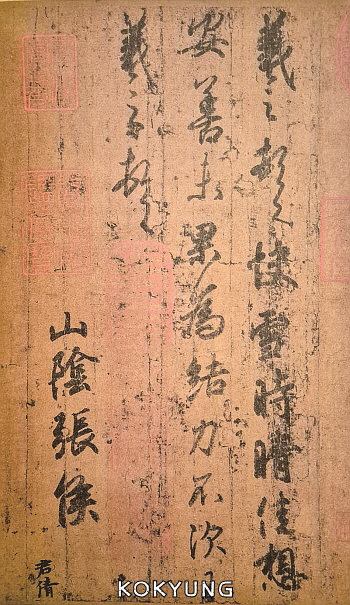 羲之頓首快雪時晴佳想
安善未果為結力不次王
羲之頓首
山陰張侯
君倩
KOKYUNG